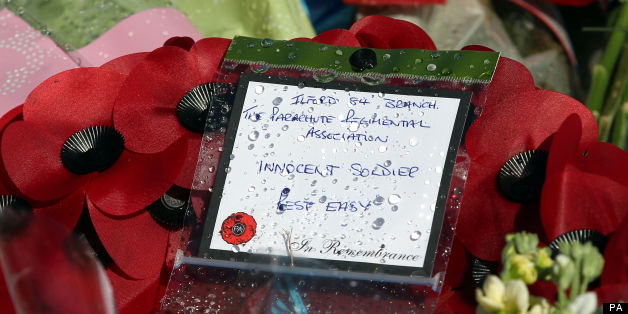 ILFORD 84 BRANCH.
THE PARACHUTE REGIMENTAL
ASSOCIATION
INNOCENT SOLDIER
REST EASY
In Remembrance
PA